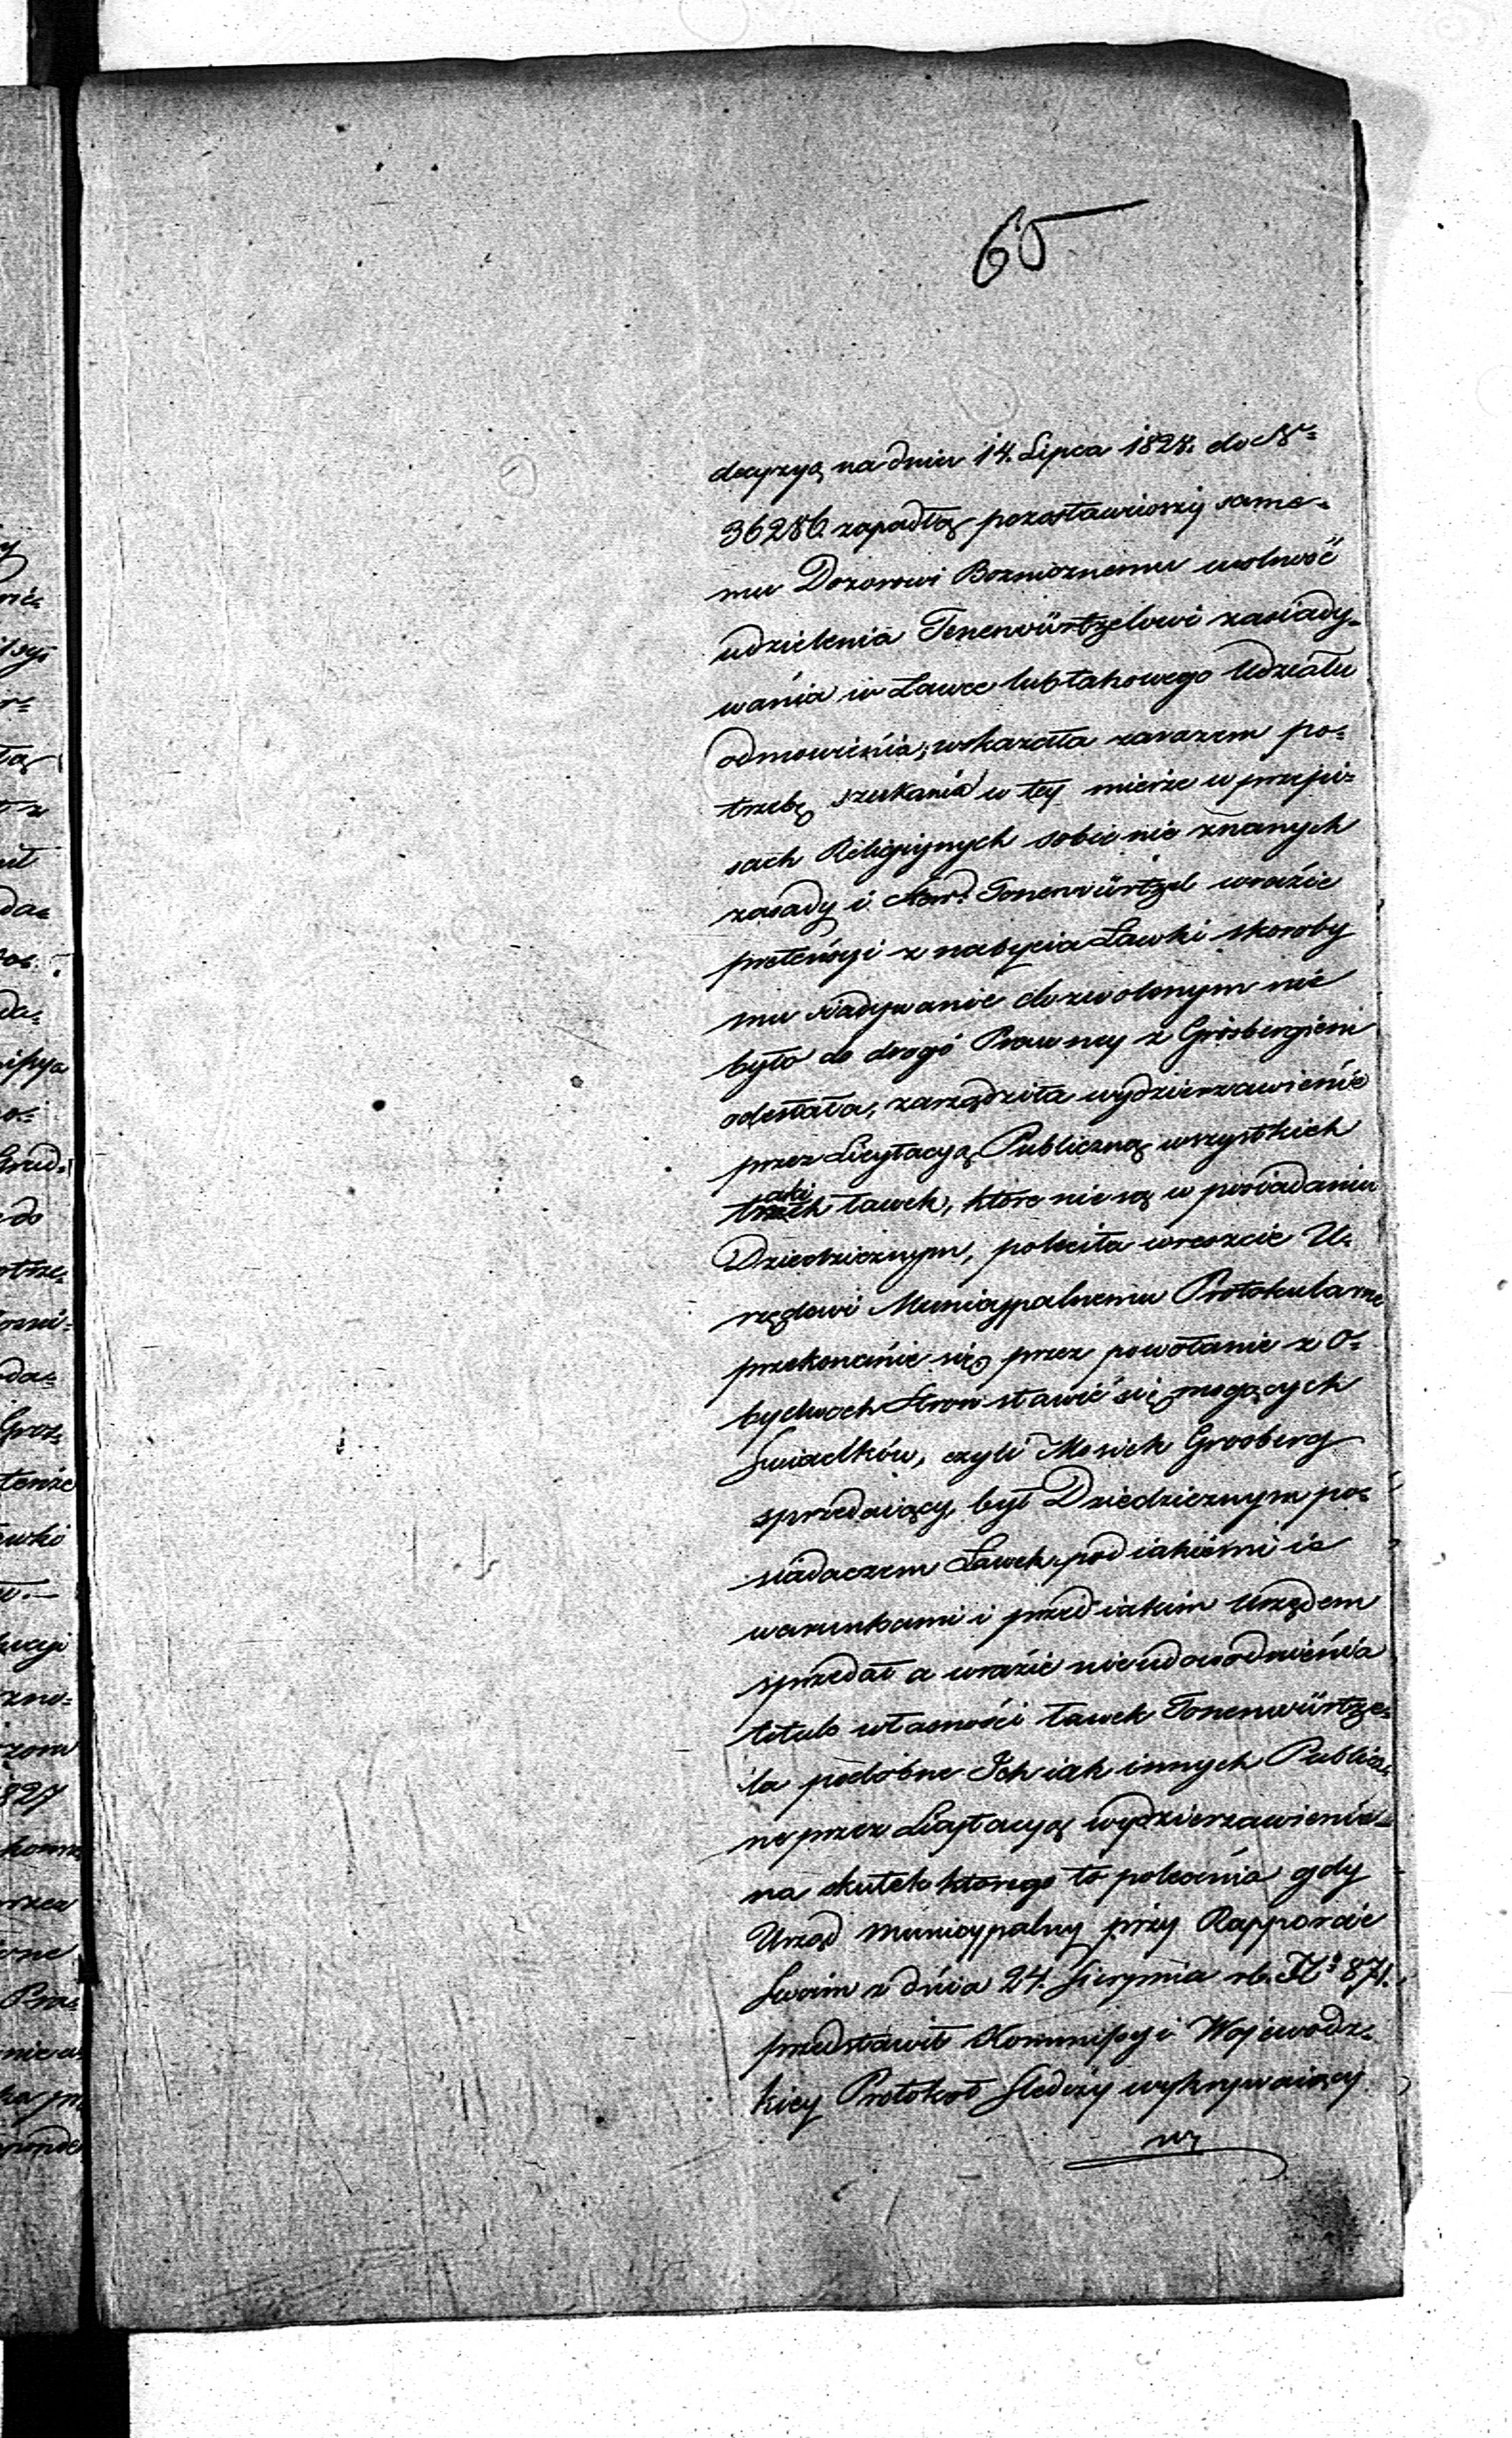 65
decyzyą na dniu 14. Lipca 1828. do Nr=
36286. zapadłą pozostawiwszy same=
mu Dozorowi Bozniczemu wolność
udzielenia Tenenwürtzelowi zasiady=
wania w Ławce lub takowego Udziału
odmowienia; wskazała zarazem po=
trzebę szukania w tey mierze w przepi=
sach Religiynych sobie nie znanych
zasady i Tonenwürtzel wrazie
pretensyi z nabycia Ławki skoroby
mu siadywanie dozwolonym nie
było do drogi Prawney z Grosbergiem
odesłała, zarządziła wydzierzawienie
przez Licytacyą Publiczną wszystkich
takich ławek, które nie są w posiadaniu
Dziedzicznym, poleciła wreszcie U=
rzędowi Municypalnemu Protokularne
przekonanie się przez powołanie z O=
bydwoch Stron stawić się mogących
Swiadków, czyli Mosiek Grosberg
sprzedaiący, był Dziedzicznym po=
siadaczem Ławek, pod iakiemi ie
warunkami i przed iakim Urzędem
sprzedał a wrazie nieudowodnienia
tytułu własności ławek Tonenwürtze=
la podobne Ich iak innych Publicz=
ne przez Licytacyą wydzierzawienie
na skutek którego to polecenia gdy
Urząd Municypalny przy Rapporcie
Swoim z dnia 24. Sierpnia rb. No 871.
przedstawił Kommissyi Wojewodz=
kiey Protokoł Sledczy wykrywaiący